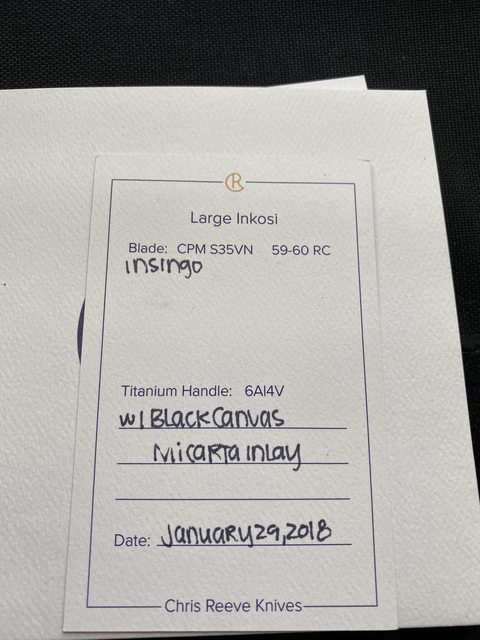 CR
Large Inkosi
Blade: CPM S35VN 59-60 RC
insingo
Titanium Handle: 6Al4V
w/ Black Canvas
Micarta inlay
Date: January 29, 2018
Chris Reeve Knives